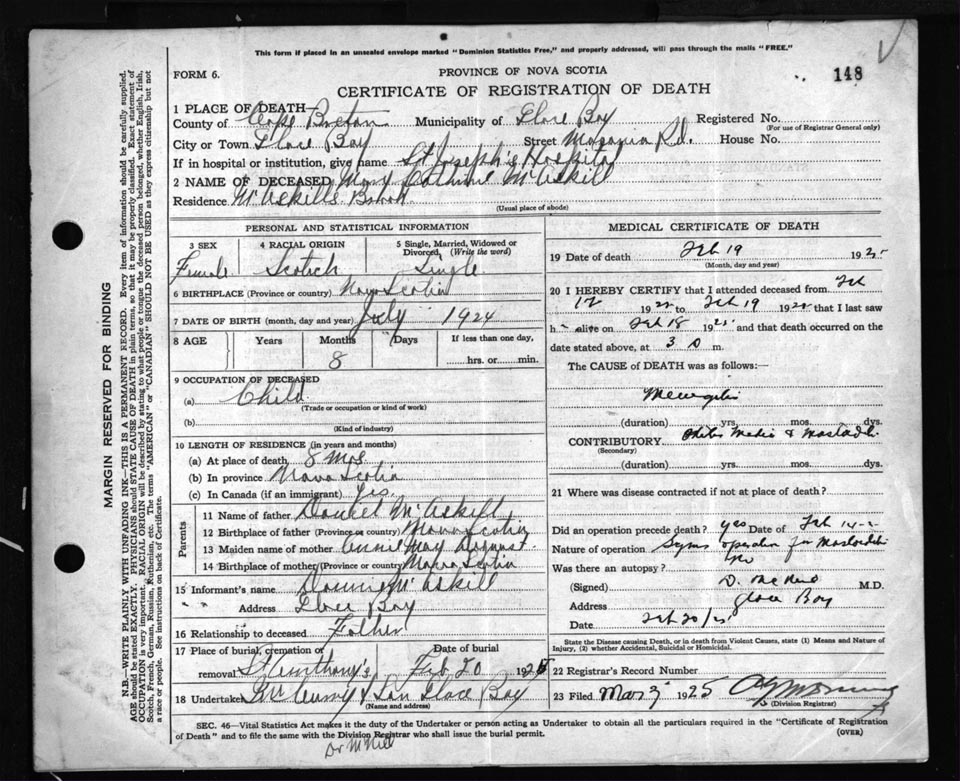 This form if placed in an unsealed envelope marked "Dominion Statistics Free," and properly addressed, will pass through the mails "FREE."
FORM 6.
PROVINCE OF NOVA SCOTIA
148
CERTIFICATE OF REGISTRATION OF DEATH
1 PLACE OF DEATH—
County of Cape Breton Municipality of Glace Bay Registered No.
(For use of Registrar General only)
City or Town Glace Bay Street Rd. House No.
If in hospital or institution, give name St Joseph's Hospital
2 NAME OF DECEASED Mary Catherine McAskill
Residence McAskills Brook
(Usual place of abode)
PERSONAL AND STATISTICAL INFORMATION
3 SEX 4 RACIAL ORIGIN 5 Single, Married, Widowed or Divorced, (Write the word)
Female Scotch Single
6 BIRTHPLACE (Province or country) Nova Scotia
7 DATE OF BIRTH (month, day and year) July 1924
8 AGE Years Months Days If less than one day,
8 hrs. or min.
9 OCCUPATION OF DECEASED
(a) Child
(Trade or occupation or kind of work)
(b)
(Kind of industry)
10 LENGTH OF RESIDENCE (in years and months)
(a) At place of death 8 mos
(b) In province Nova Scotia
(c) In Canada (if an immigrant) Yes
Parents
11 Name of father McAskill
12 Birthplace of father (Province or country) Nova Scotia
13 Maiden name of mother Annie May
14 Birthplace of mother (Province or country) Nova Scotia
15 Informant's name McAskill
" " Address Glace Bay
16 Relationship to deceased Father
17 Place of burial, cremation or removal Date of burial
St Anthony's Feb 20 1925
18 Undertaker & Son Glace Bay
(Name and address)
MEDICAL CERTIFICATE OF DEATH
19 Date of death Feb 19 1925
(Month, day and year)
20 I HEREBY CERTIFY that I attended deceased from Feb
12 1925 to Feb 19 1925 that I last saw
h alive on Feb 18 1925 and that death occurred on the
date stated above, at 3 m.
The CAUSE of DEATH was as follows:—
Meningitis
(duration) yrs. mos. dys.
CONTRIBUTORY Otitis Media & Mastoid
(Secondary)
(duration) yrs. mos. dys.
21 Where was disease contracted if not at place of death?
Did an operation precede death? yes Date of Feb
Nature of operation operation for Mastoiditis
Was there an autopsy? No
(Signed) D. M.D.
Address Glace Bay
Date Feb 20/25
State the Disease causing Death, or in death from Violent Causes, state (1) Means and Nature of
Injury, (2) whether Accidental, Suicidal or Homicidal.
22 Registrar's Record Number
23 Filed Mar 3 1925
(Division Registrar)
SEC. 46—Vital Statistics Act makes it the duty of the Undertaker or person acting as Undertaker to obtain all the particulars required in the "Certificate of Registration
of Death" and to file the same with the Division Registrar who shall issue the burial permit.
(OVER)
Dr McNeil
MARGIN RESERVED FOR BINDING
N.B.—WRITE PLAINLY WITH UNFADING INK—THIS IS A PERMANENT RECORD. Every item of information should be carefully supplied.
AGE should be stated EXACTLY. PHYSICIANS should STATE CAUSE OF DEATH in plain terms, so that it may be properly classified. Exact statement of
OCCUPATION is very important. RACIAL ORIGIN will be described by stating to what people or tongue the deceased person belonged, whether English, Irish,
Scotch, French, German, Russian, Ruthenian, etc. The terms "AMERICAN" or "CANADIAN" SHOULD NOT BE USED as they express citizenship but not
a race or people. See instructions on back of Certificate.